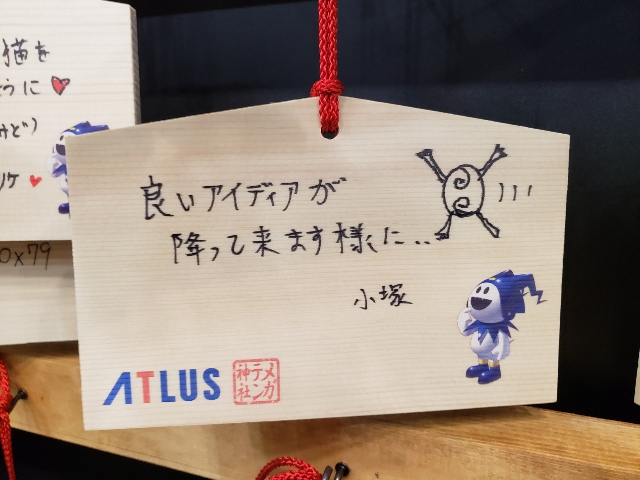 猫を
うに
みど)
0x79
良いアイディアが
降って来ます様に..
小塚
ATLUS
メガテン神社